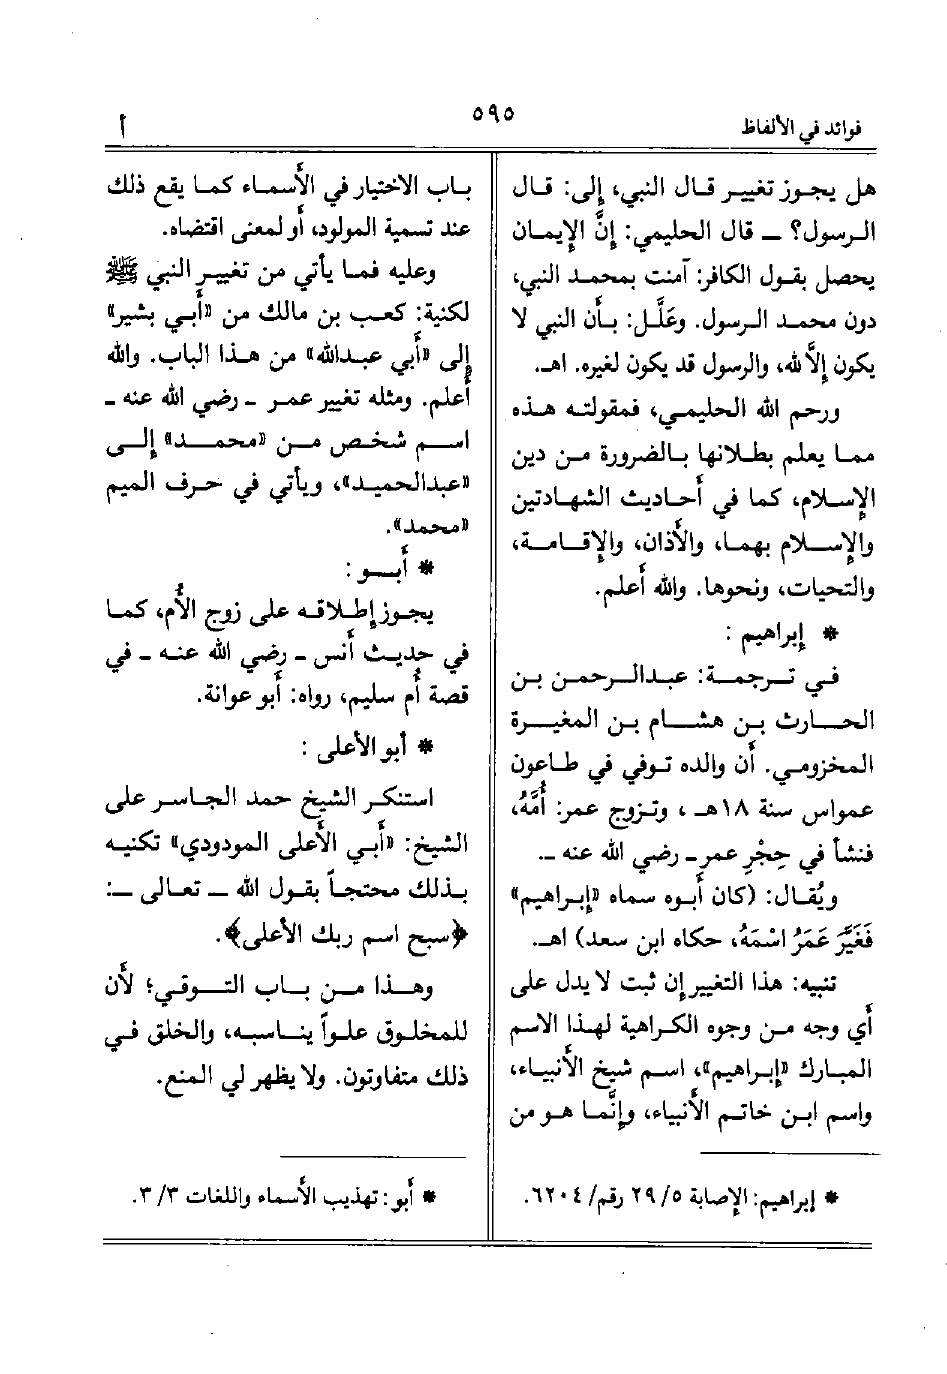 فوائد في الألفاظ
٥٩٥
أ
هل يجوز تغيير قال النبي، إلى: قال
الرسول؟ ــ قال الحليمي: إنَّ الإيمان
يحصل بقول الكافر: آمنت بمحمد النبي،
دون محمد الرسول. وعَلَّل: بأن النبي لا
يكون إلاَّ لله، والرسول قد يكون لغيره. اهـ.
ورحم الله الحليمي، فمقولته هذه
مما يعلم بطلانها بالضرورة من دين
الإسلام، كما في أحاديث الشهادتين
والإسلام بهما، والأذان، والإقامة،
والتحيات، ونحوها. والله أعلم.
* إبراهيم :
في ترجمة: عبدالرحمن بن
الحارث بن هشام بن المغيرة
المخزومي. أن والده توفي في طاعون
عمواس سنة ١٨هـ ، وتزوج عمر: أُمَّهُ،
فنشأ في حِجْرِ عمر ـ رضي الله عنه ـ.
ويُقال: (كان أبوه سماه «إبراهيم»
فَغَيَّرَ عَمَرُ اسْمَهُ، حكاه ابن سعد) اهـ.
تنبيه: هذا التغيير إن ثبت لا يدل على
أي وجه من وجوه الكراهية لهذا الاسم
المبارك «إبراهيم»، اسم شيخ الأنبياء،
واسم ابن خاتم الأنبياء، وإنَّما هو من
* إبراهيم: الإصابة ٥/ ٢٩ رقم/ ٦٢٠٤.
باب الاختيار في الأسماء كما يقع ذلك
عند تسمية المولود، أو لمعنى اقتضاه.
وعليه فما يأتي من تغيير النبي ﷺ
لكنية: كعب بن مالك من «أبي بشير»
إلى «أبي عبدالله» من هذا الباب. والله
أعلم. ومثله تغيير عمر ـ رضي الله عنه ـ
اسم شخص من «محمد» إلى
«عبدالحميد»، ويأتي في حرف الميم
«محمد».
* أبو :
يجوز إطلاقه على زوج الأم، كما
في حديث أنس ـ رضي الله عنه ـ في
قصة أم سليم، رواه: أبو عوانة.
* أبو الأعلى :
استنكر الشيخ حمد الجاسر على
الشيخ: «أبي الأعلى المودودي» تكنيه
بذلك محتجاً بقول الله ــ تعالى ــ:
﴿سبح اسم ربك الأعلى﴾.
وهذا من باب التوقي؛ لأن
للمخلوق علواً يناسبه، والخلق في
ذلك متفاوتون. ولا يظهر لي المنع.
* أبو: تهذيب الأسماء واللغات ٣/ ٣.